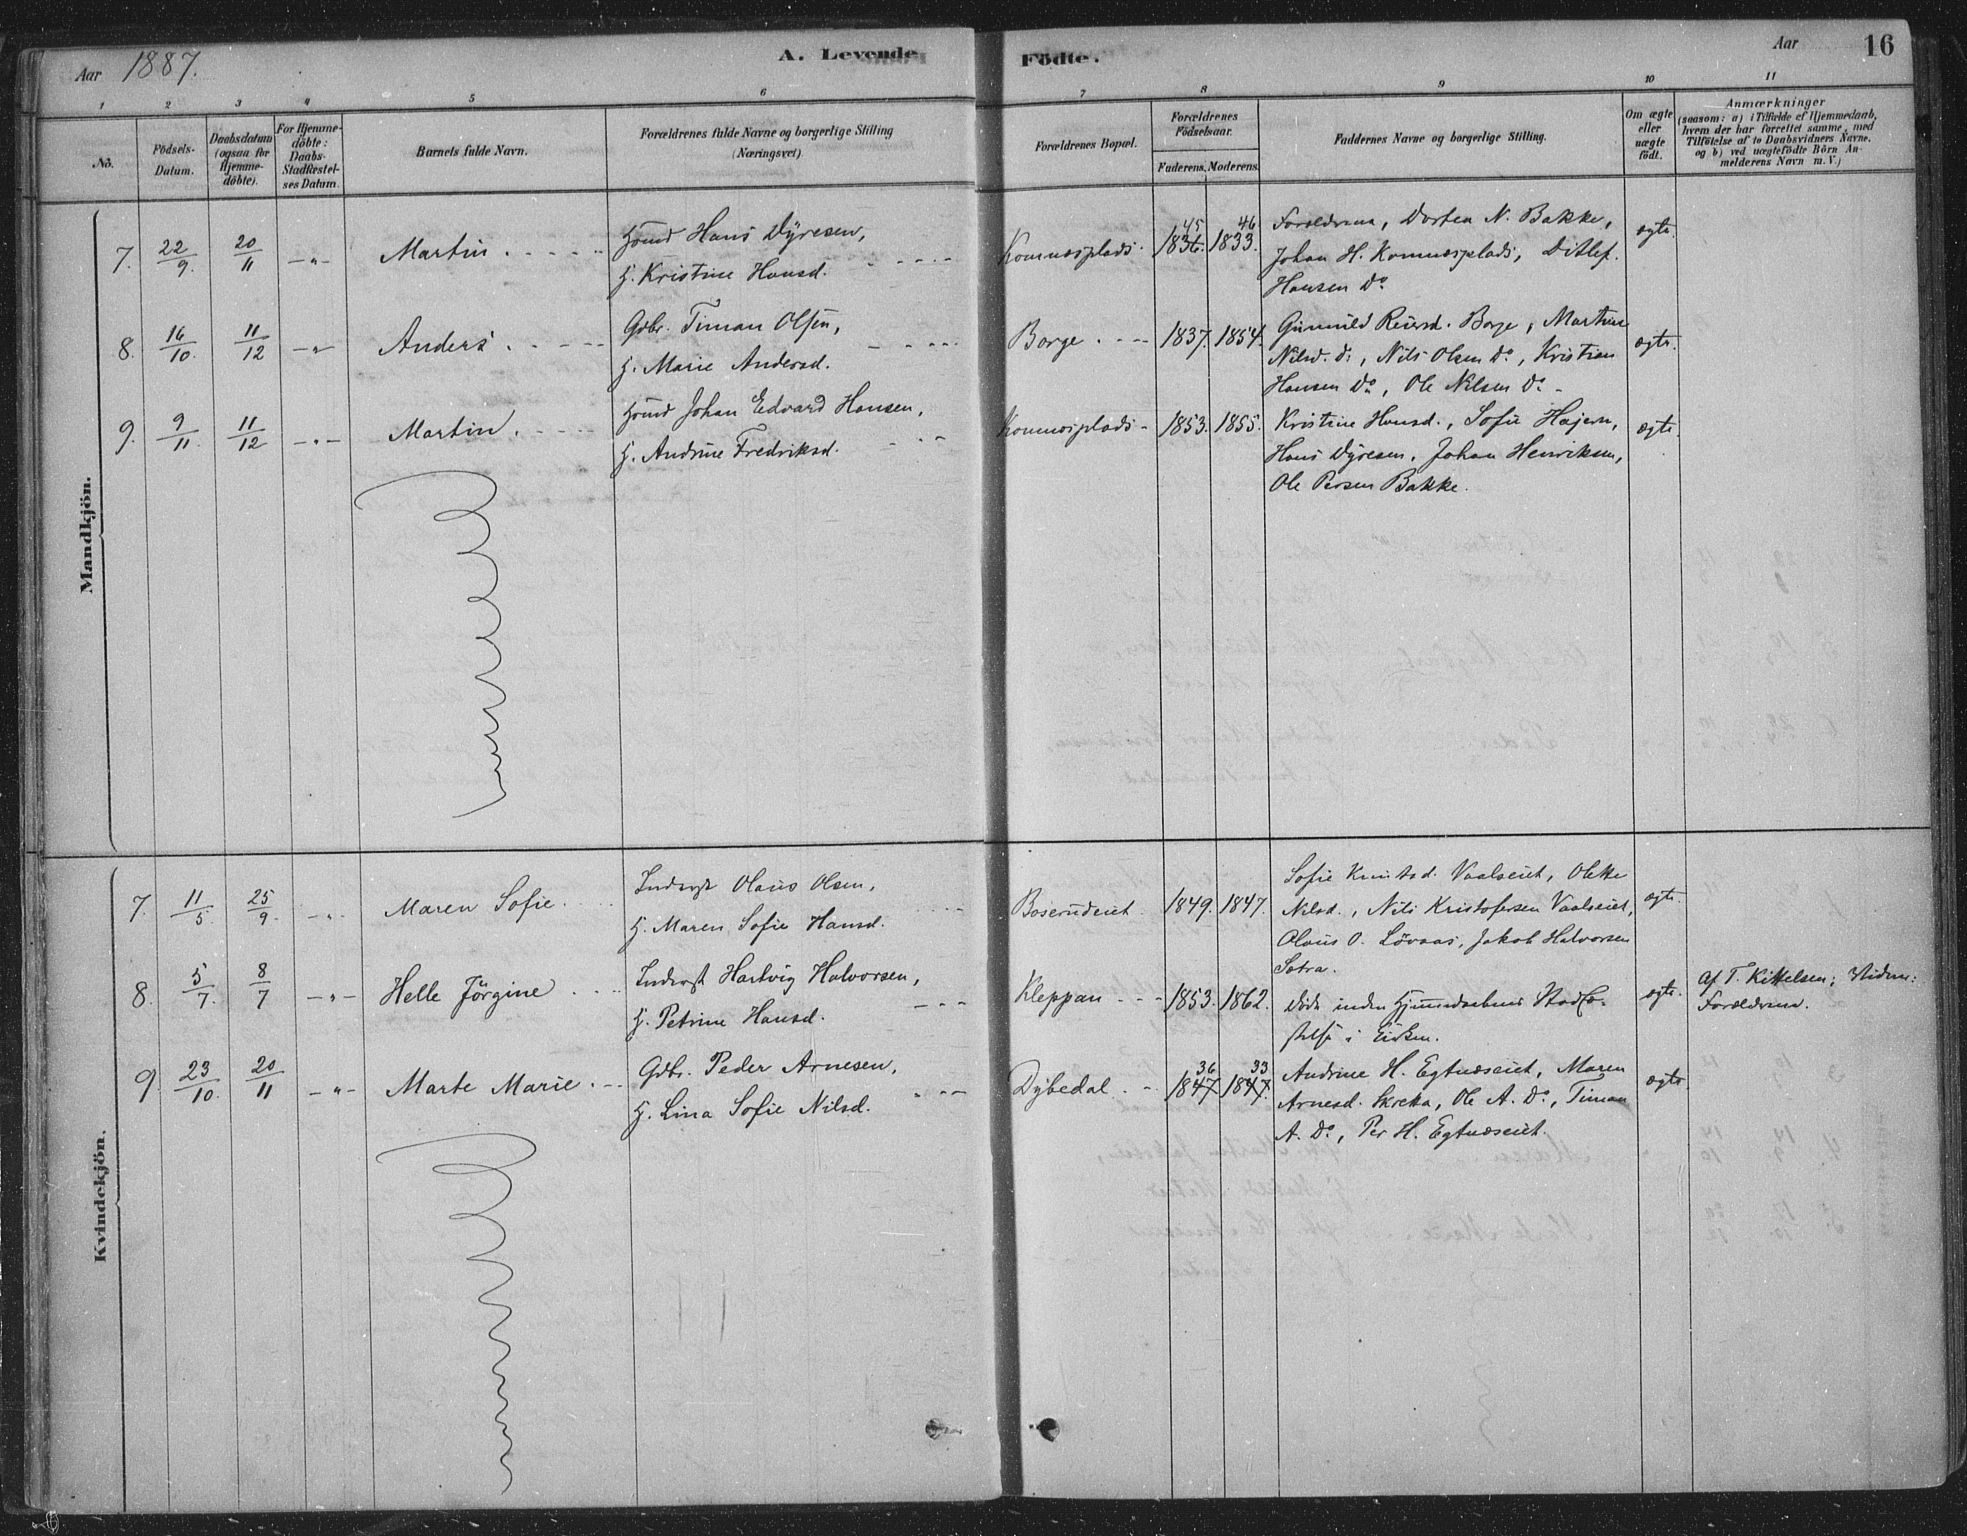 Aar 1887. A. Levende Födte. Aar 16
1 2 3 4 5 6 7 8 9 10 11
No.
Födsels-Datum.
Daabsdatum (ogsaa for Hjemme-döbte).
For Hjemme-döbte: Daabs-Stadfæstel-ses Datum.
Barnets fulde Navn.
Forældrenes fulde Navne og borgerlige Stilling (Næringsvei)
Forældrenes Bopæl.
Forældrenes Födselsaar.
Faderens. Moderens.
Faddernes Navne og borgerlige Stilling.
Om ægte eller uægte födt.
Anmærkninger
(saasom: a) i Tilfælde af Hjemmedaab,
hvem der har forrettet samme, med
Tilföielse af to Daabsvidners Navne.
og b) ved uægtefödte Börn An-
melderens Navn m. V.)
Mandkjön.
7. 22/9. 20/11 -"- Martin. Hans Dyresen, Komnæsplads. 45 1836. 46 1833. Forældrene, Dortea N. Bakke, ægte.
H. Kristine Hansd. Johan H. Komnæsplads, Ditlef.
Hansen Do
8. 16/10. 11/12 -"- Anders. Gdbr. Timan Olsen, Borge. 1837. 1854. Gunnild Reiersd. Borge, Martine ægte.
H. Marie Andersd. Nilsd. Do, Nils Olsen Do, Kristian
Hansen Do, Ole Nilsen Do
9. 9/11. 11/12 -"- Martin. Johan Edvard Hansen, Komnæsplads 1853. 1855. Kristine Hansd., Sofie Hajern, ægte.
H. Andrine Fredriksd. Hans Dyresen, Johan Henriksen,
Ole Persen Bakke.
Kvindekjön.
7. 11/5. 25/9 -"- Maren Sofie. Inderst Olaus Olsen, Boserudeiet. 1849. 1847. Sofie Vaalseiet, Olette ægte.
H. Maren Sofie Hansd. Nilsd., Nils Kristofersen Vaalseiet,
Olaus O. Løvaas, Jakob Halvorsen
Sætra.
8. 5/7. 8/7 -"- Helle Jörgine Inderst Hartvig Halvorsen, Kleppan 1853. 1862. Død inden Hjemmedaabens Stadfæ- ægte. Af T. Kittelsen; Vidner:
H. Petrine Hansd. stelse i Kirken. Forældrene.
9. 23/10. 20/11 -"- Marte Marie. Gdbr. Peder Arnesen, Dybedal. 36 1847 33 1847. Andrine H. Egtnæseiet, Maren ægte
H. Lina Sofie Nilsd. Arnesd. Skretta, Ole A. Do, Timan
A. Do, Per H. Egtnæseiet.